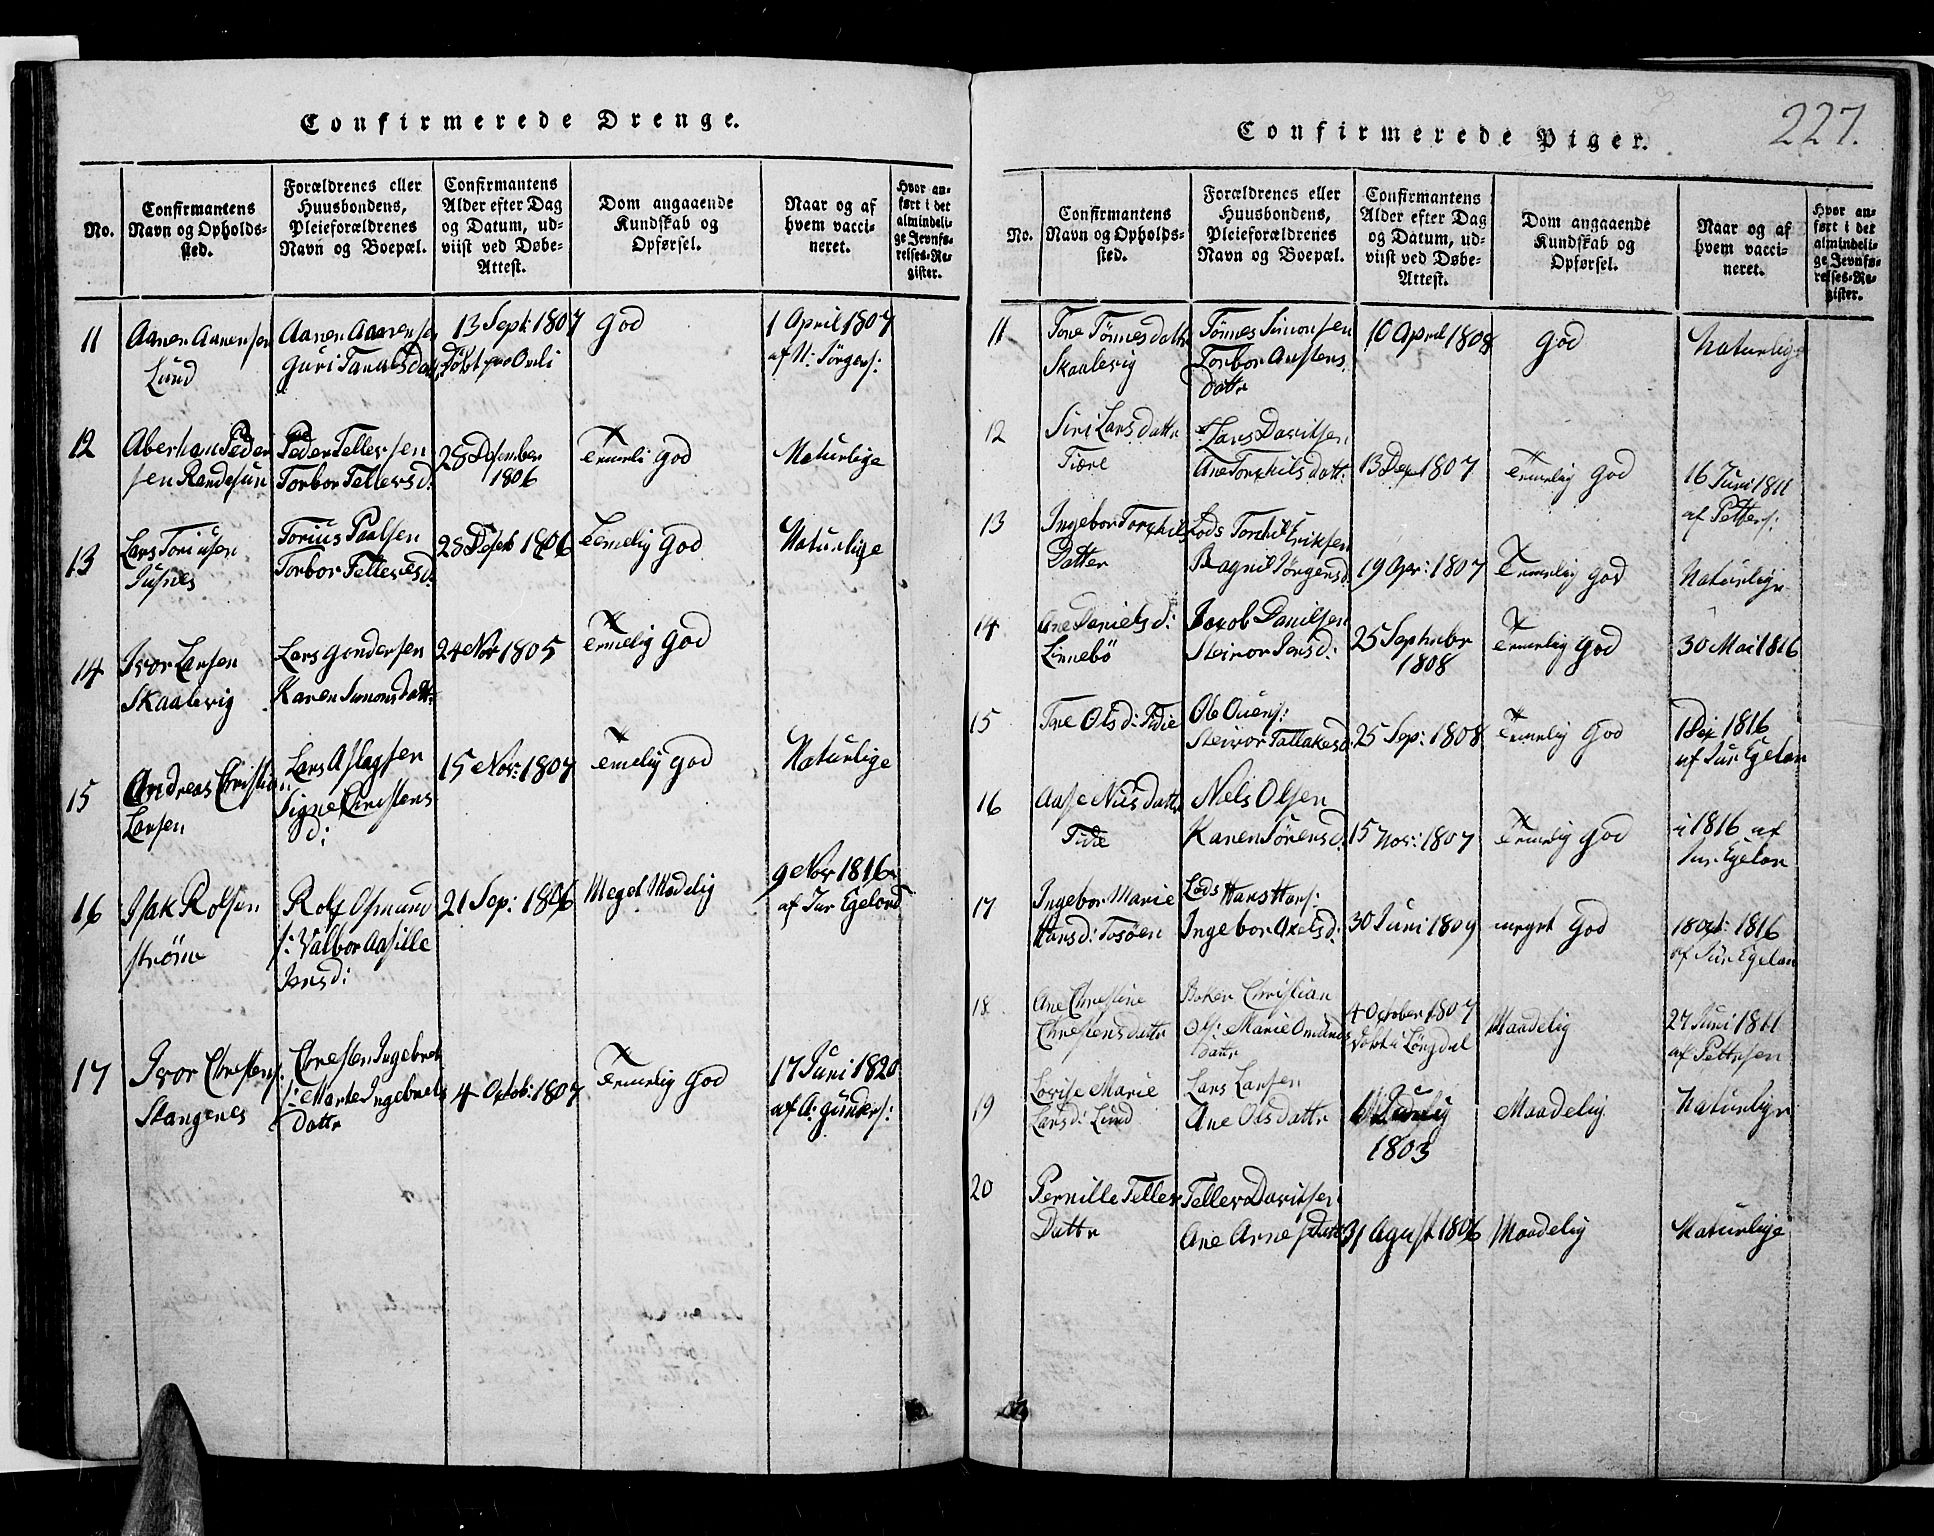 Confirmerede Drenge.
No.
Confirmantens
Navn og Opholds-
sted.
Forældrenes eller
Huusbondens,
Pleieforældrenes
Navn og Boepæl.
Confirmantens
Alder efter Dag
og Datum, ud-
viist ved Døbe-
Attest.
Dom angaaende
Kundskab og
Opførsel.
Naar og af
hvem vacci-
neret.
Hvor an-
ført i det
almindeli-
ge Jevnfø-
relses-Re-
gister.
11
Aanen Aanensen
Lund
Aanen Aanensen
Guri
13 Sept: 1807
Døbt
God
1 April 1807
af N: Jørgens:
12
Aberham Peder
sen Randesun
Peder Tellefsen
Torbor Tellefsd:
28 Desember
1806
Temeli God
Naturlige
13
Lars Toriusen
Torius Paalsen
Torbor Tellevesd:
28 Deseb 1806
Temelig God
Naturlige
14
Ivor Larsen
Skaalevig
Lars Gundersen
Karen Simonsdattr
24 Nov 1805
Temelig God
15
Andreas Christian
Larsen
Lars Aslagsen
Signe Christens
d:
15 Nov: 1807
Temelig God
Naturlige
16
Isak Rolfsen
Strøme
Rolf Osmund
s: Valbor Aasille
Jensd:
21 Sep: 1806
Meget Maadelig
9 Nov 1816
af Jur Egeland
17
Ivor Christens:
Stangenes
Christen Ingebret
s: Marte Ingebrets
Dattr
4 Octob: 1807
Temelig God
17 Juni 1820
af A: Gunders:
Confirmerede Piger.
227.
No.
Confirmantens
Navn og Opholds-
sted.
Forældrenes eller
Huusbondens,
Pleieforældrenes
Navn og Boepæl.
Confirmantens
Alder efter Dag
og Datum, ud-
viist ved Døbe-
Attest.
Dom angaaende
Kundskab og
Opførsel.
Naar og af
hvem vacci-
neret.
Hvor an-
ført i det
almindeli-
ge Jevnfø-
relses-Re-
gister.
11
Tone Tønnesdattr
Skaalevig
Tønnes Simonsen
Torbor Austens
Dattr
10 April 1808
God
Naturlige
12
Siri Larsdattr
Lars Davitsen
Ane Torchilsdatt:
13 Des 1807
Temelig God
16 Juni 1811
af Petters:
13
Ingebor Torchils
Datter
Lods Torchil Eriksen
Ragnil Jørgensd:
19 Apr: 1807
Temelig God
Naturlige
14
Ane Danielsd:
Linnebö
Jacob Danilsen
Steinor Jensd:
25 September
1808
Temelig God
30 Mai 1816
15
Tone Olsd:
Ole Ouens:
Steinor Tallaksd
25 Sep: 1808
Temelig God
1816
af Jur Egelan
16
Aase Nilsdattr
Niels Olsen
Karen Sørensd:
15 Nov: 1807
Temelig God
i 1816 af
Jur. Egelan
17
Ingebor Marie
Hansd:
Lods Hans Hans:
Ingebor Axelsd:
30 Juni 1809
meget God
1816
af Jur Egelan
18
Ane Christine
Christensdattr
Christian
Ols: Marie
Dattr
4 October 1807
Døbt i
Maadelig
27 Juni 1811
af Pettersen
19
Lovise Marie
Larsd: Lund
Lars Larsen
Ane Olsdattr
1803
Maadelig
Naturlige
20
Pernille Tellefs
Dattr
Tellev Davitsen
Ane Arnes Datt
31 Agust 1806
Maadelig
Naturlige